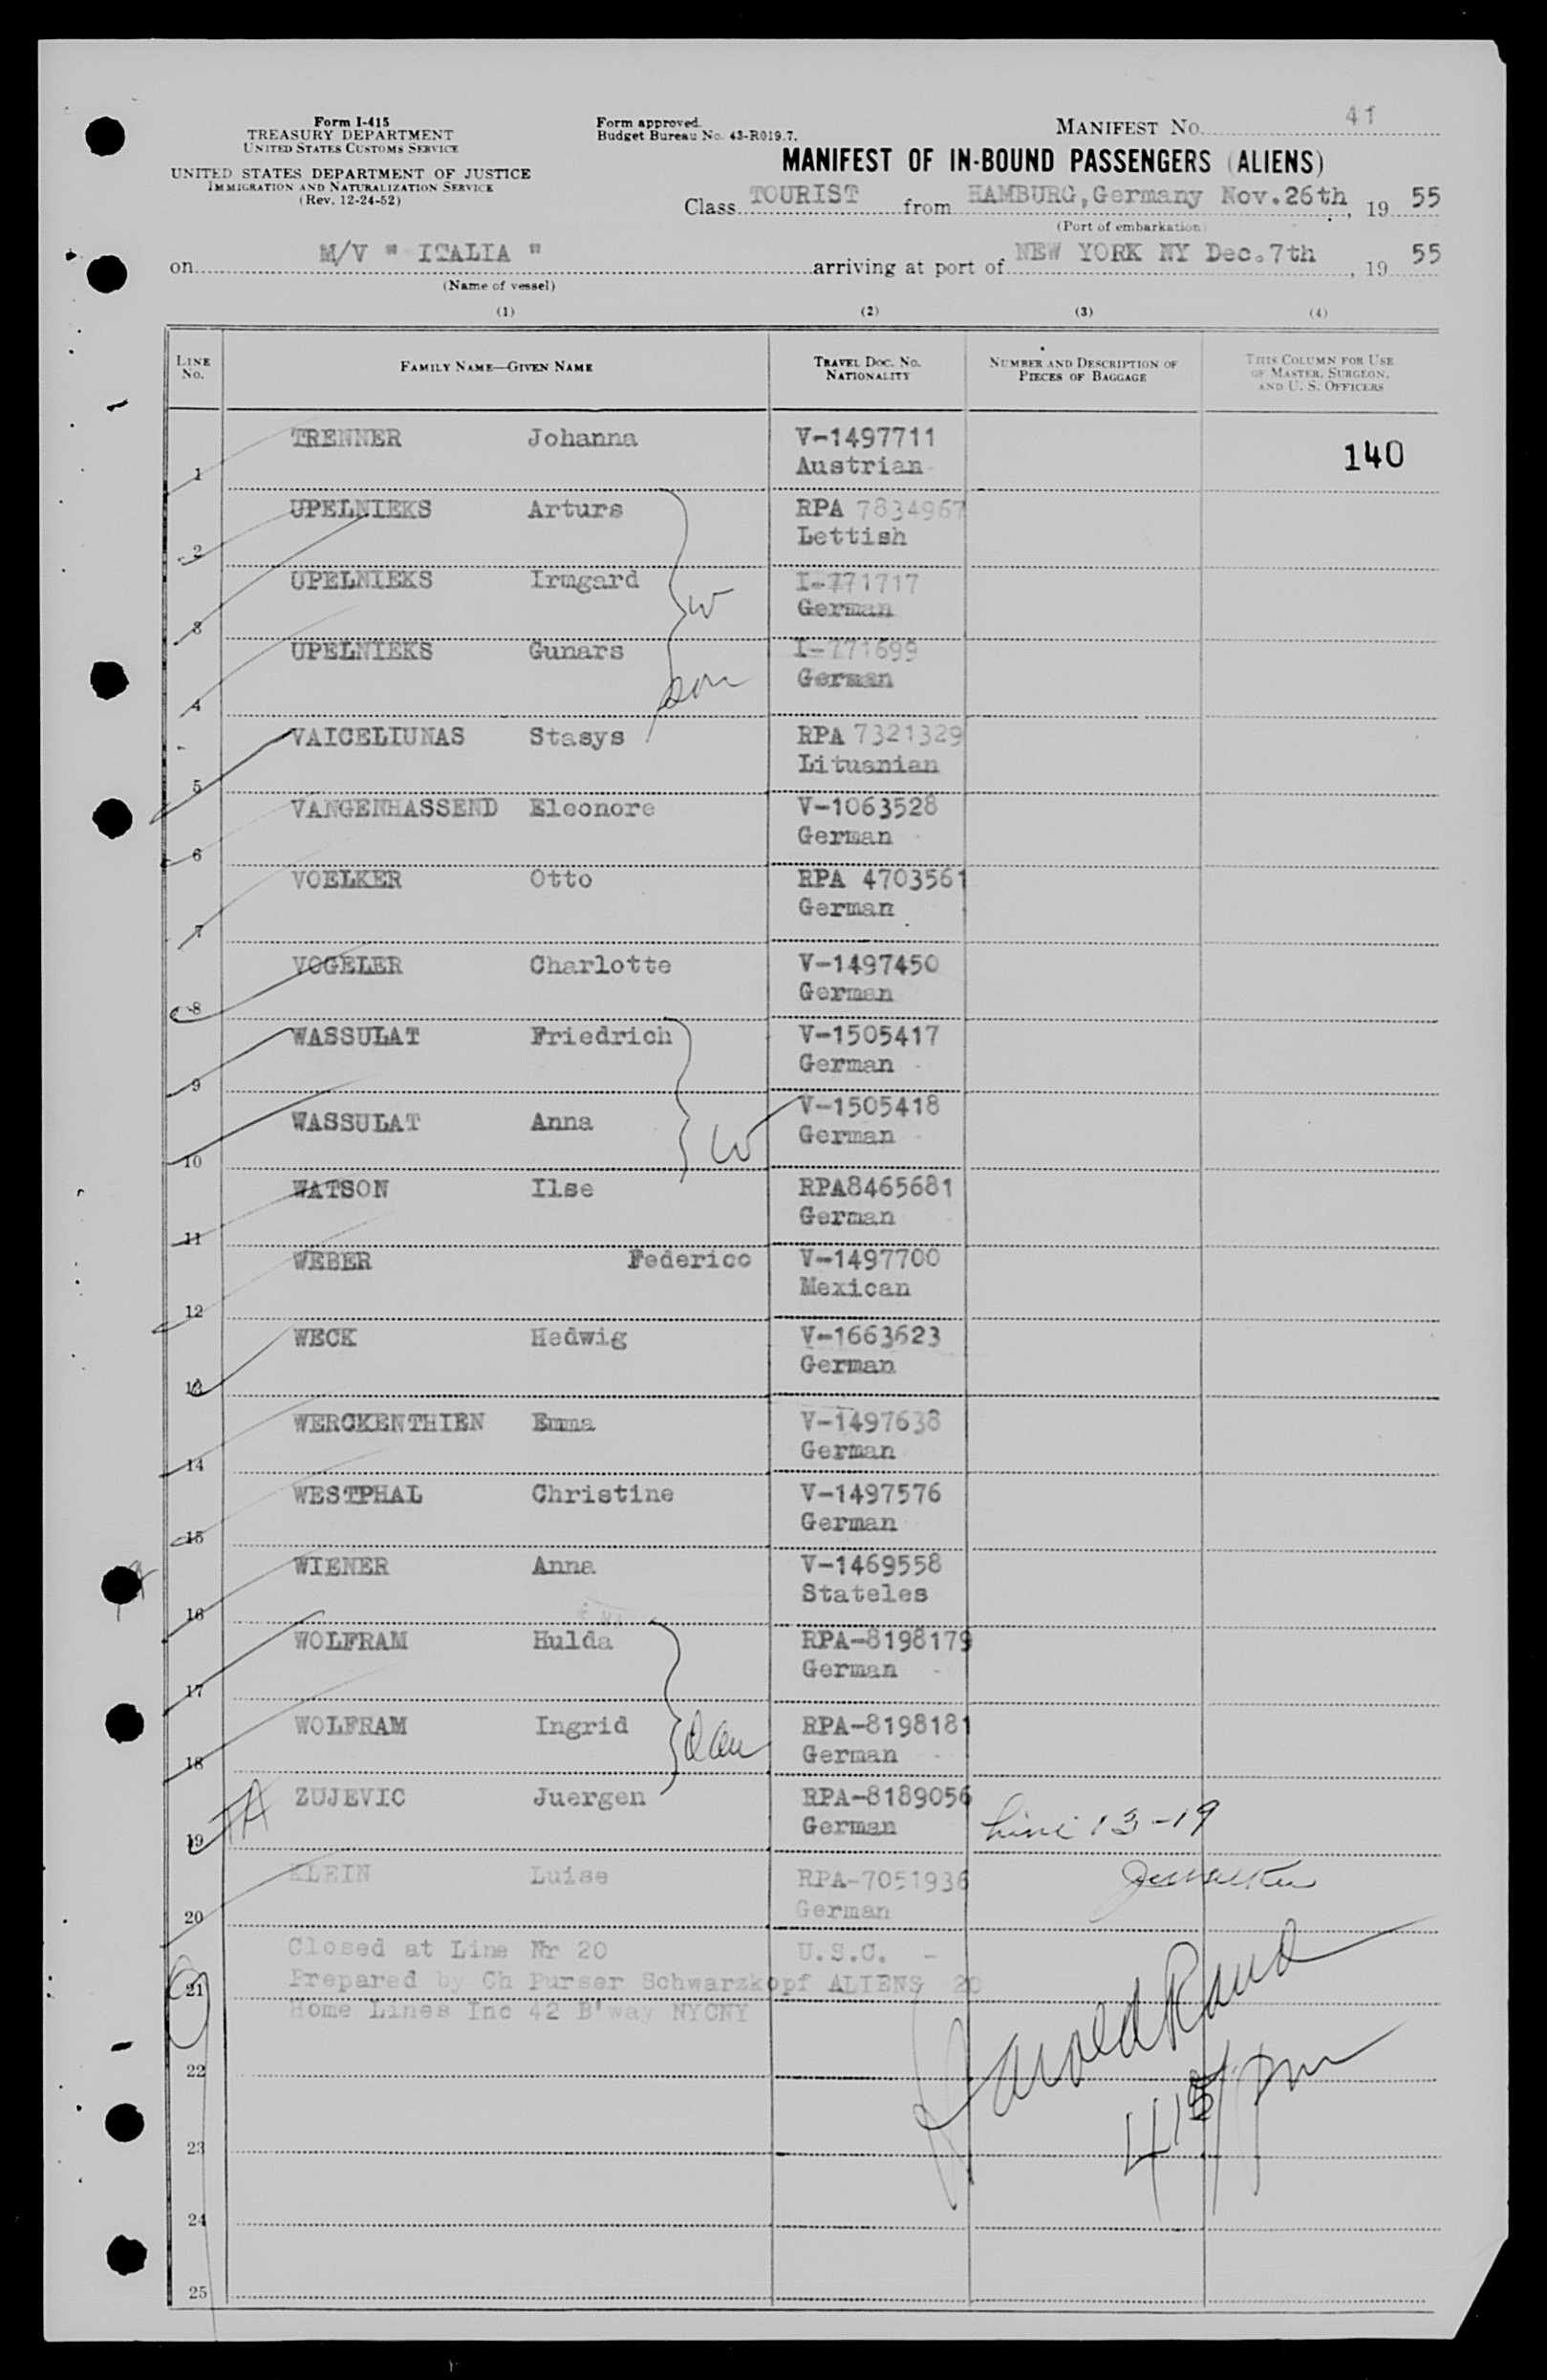 Form I-415
TREASURY DEPARTMENT
UNITED STATES CUSTOMS SERVICE
UNITED STATES DEPARTMENT OF JUSTICE
IMMIGRATION AND NATURALIZATION SERVICE
(Rev. 12-24-52)
Form approved.
Budget Bureau No. 43-R019.7.
MANIFEST NO. 41
MANIFEST OF IN-BOUND PASSENGERS (ALIENS)
Class TOURIST from HAMBURG, Germany Nov.26th, 19 55
(Port of embarkation)
on M/V " ITALIA " arriving at port of NEW YORK NY Dec.7th, 19 55
(Name of vessel)
(1) (2) (3) (4)
LINE No. FAMILY NAME—GIVEN NAME TRAVEL DOC. NO. NATIONALITY NUMBER AND DESCRIPTION OF PIECES OF BAGGAGE THIS COLUMN FOR USE OF MASTER, SURGEON, AND U. S. OFFICERS
1 TRENNER Johanna V-1497711 140
Austrian
2 UPELNIEKS Arturs RPA 7834967
Lettish
3 UPELNIEKS Irmgard w I-771717
German
4 UPELNIEKS Gunars son I-771699
German
5 VAICELIUNAS Stasys RPA 7321329
Lituanian
6 VANGENHASSEND Eleonore V-1063528
German
7 VOELKER Otto RPA 4703561
German
8 VOGELER Charlotte V-1497450
German
9 WASSULAT Friedrich V-1505417
German
10 WASSULAT Anna W V-1505418
German
11 WATSON Ilse RPA8465681
German
12 WEBER Federico V-1497700
Mexican
13 WECK Hedwig V-1663623
German
14 WERCKENTHIEN Emma V-1497638
German
15 WESTPHAL Christine V-1497576
German
16 WIENER Anna V-1469558
Stateles
17 WOLFRAM Hulda RPA-8198179
German
18 WOLFRAM Ingrid dau RPA-8198181
German
19 ZUJEVIC Juergen RPA-8189056
German Line 13-19
20 KLEIN Luise RPA-7051936
German
Closed at Line Nr 20 U.S.C. -
21 Prepared by Ch Purser Schwarzkopf ALIENS 20
Home Lines Inc 42 B'way NYCNY
Harold Rand
22
415 pm
23
24
25